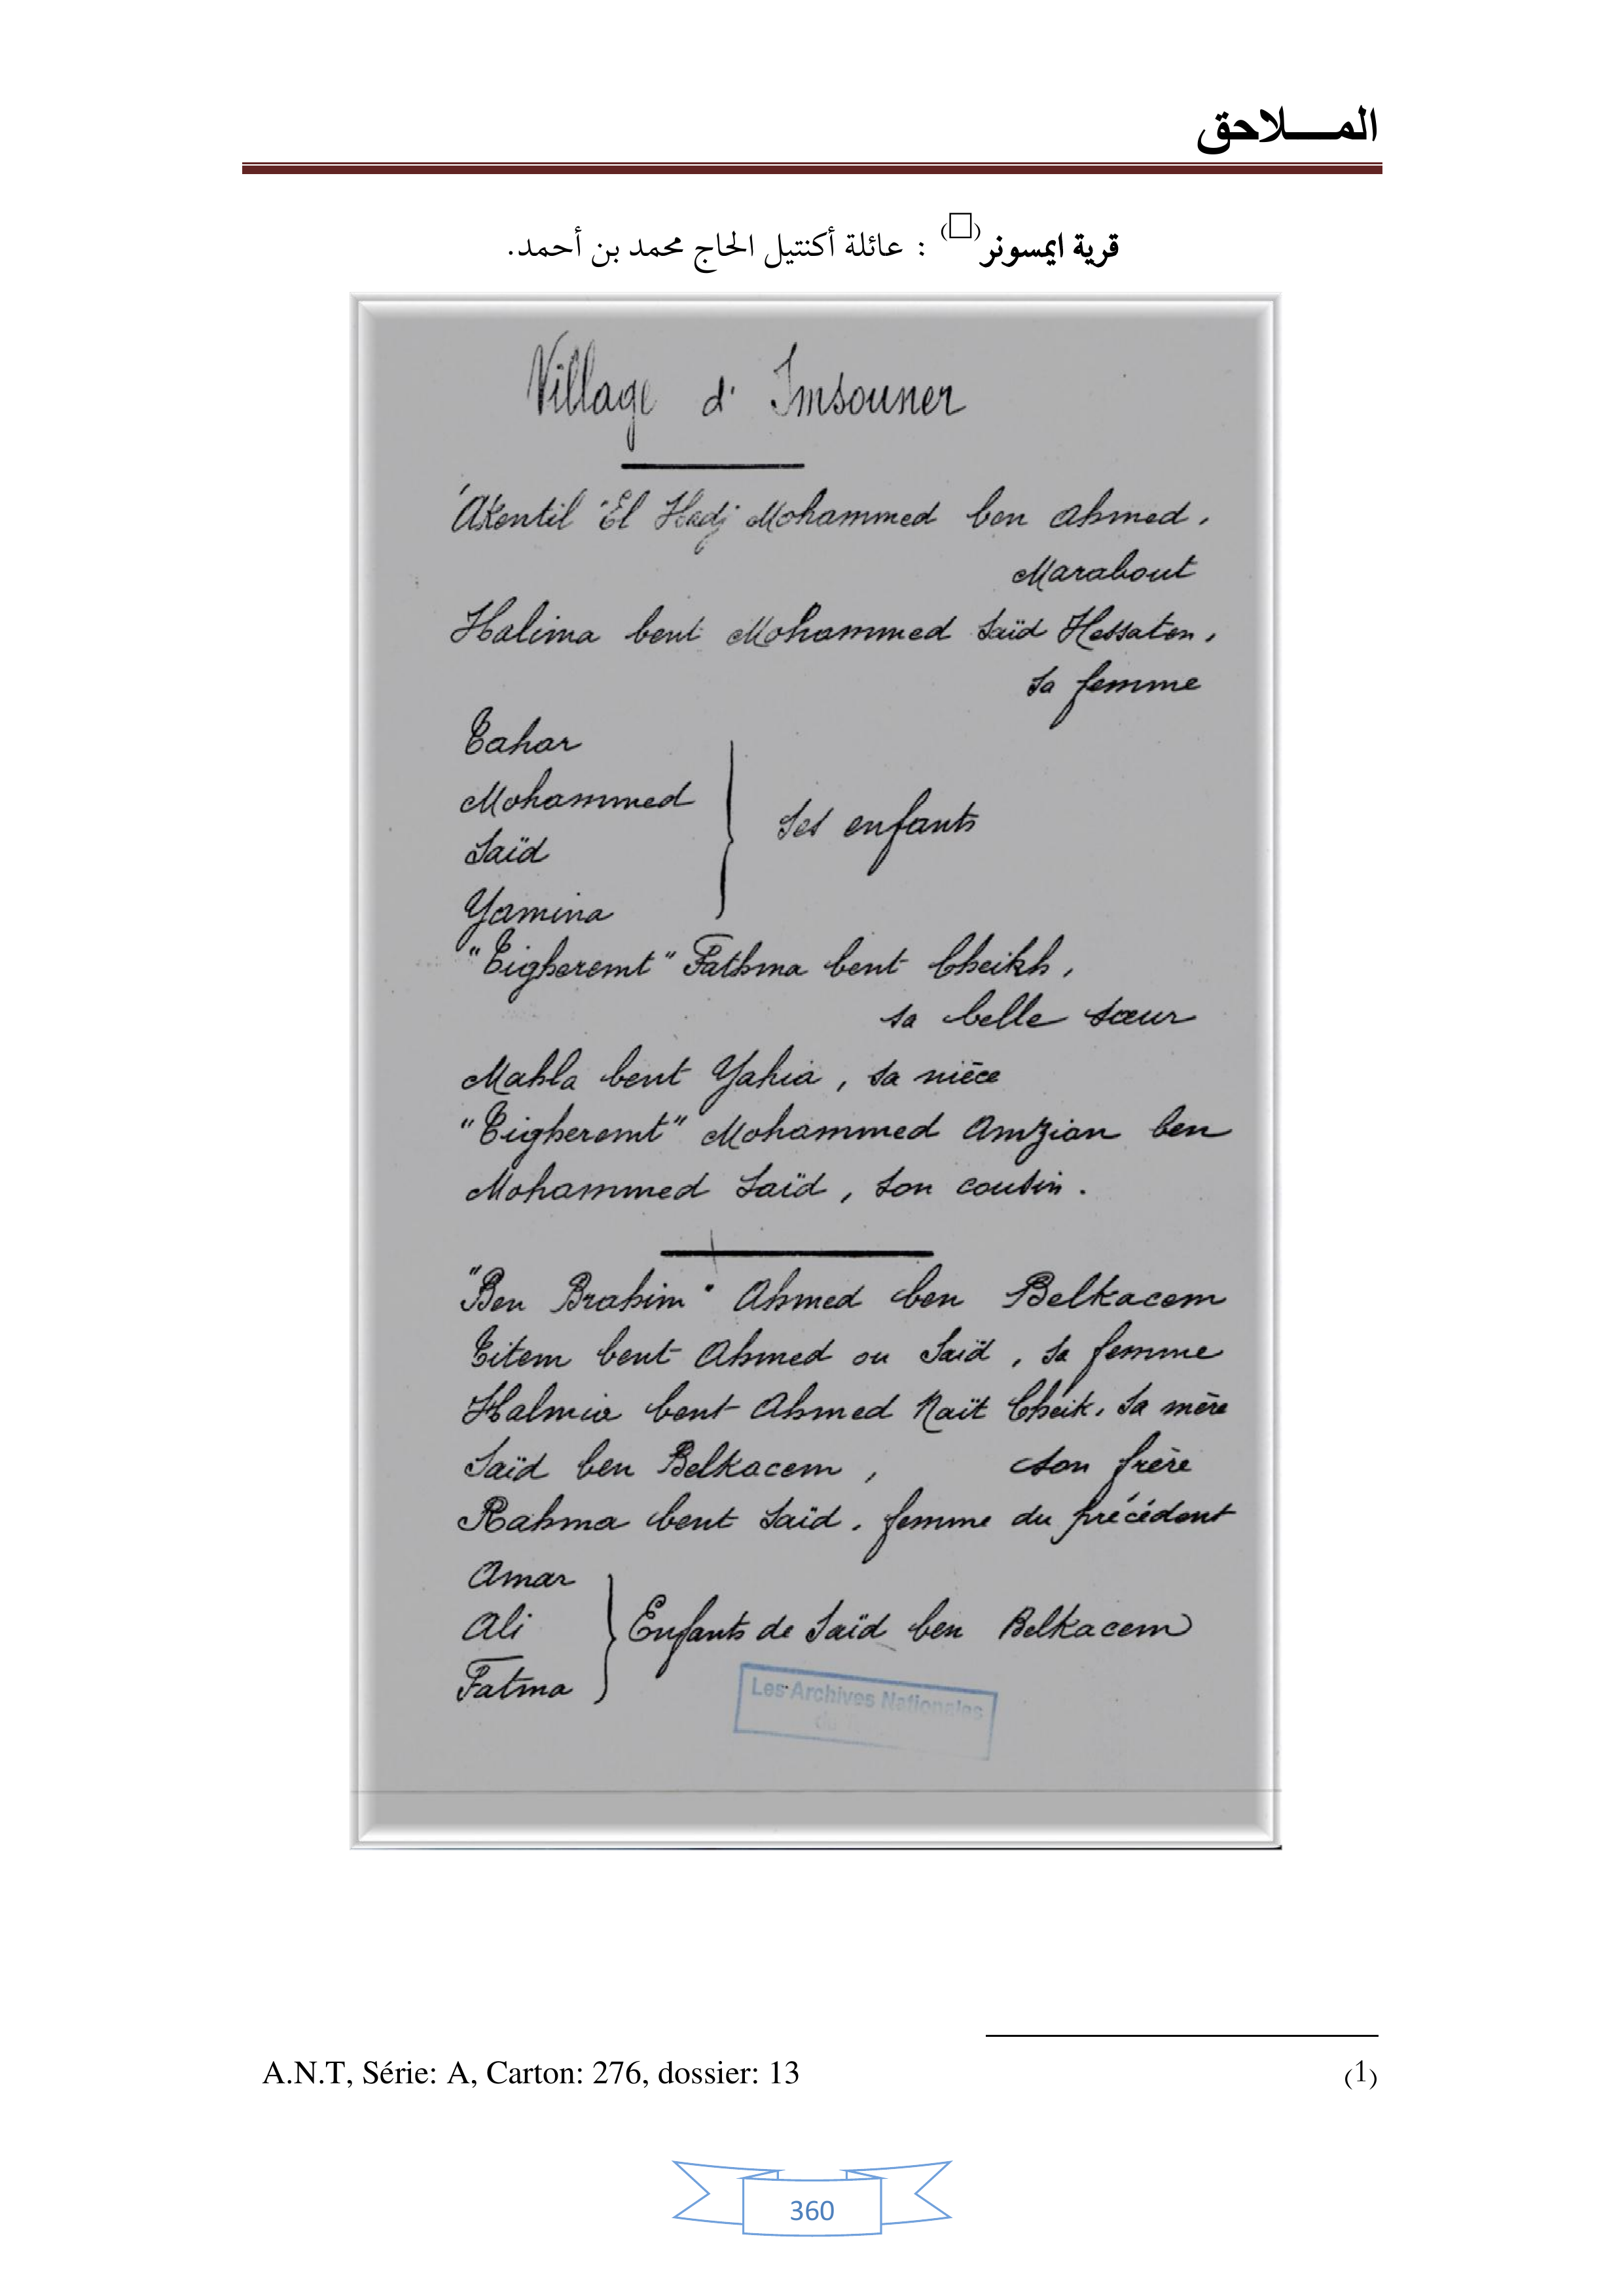 المـــــلاحق
قرية ايمسونر(□) : عائلة أكنتيل الحاج محمد بن أحمد.
Village d' Imsouner
"Akentil" El Hadj Mohammed ben Ahmed,
Marabout
Halima bent Mohammed Saïd Hessaten,
sa femme
Tahar
Mohammed
Saïd
Yamina
ses enfants
"Tigheremt" Fathma bent Cheikh,
sa belle sœur
Mahla bent Yahia, sa nièce
"Tigheremt" Mohammed Amzian ben
Mohammed Saïd, son cousin.
"Ben Brahim" Ahmed ben Belkacem
Titem bent Ahmed ou Saïd, sa femme
bent Ahmed Naït Cheik, sa mère
Saïd ben Belkacem, son frère
Rahma bent Saïd, femme du précédent
Amar
Ali
Fatma
Enfants de Saïd ben Belkacem
Les Archives Nationales
A.N.T, Série: A, Carton: 276, dossier: 13 (1)
360